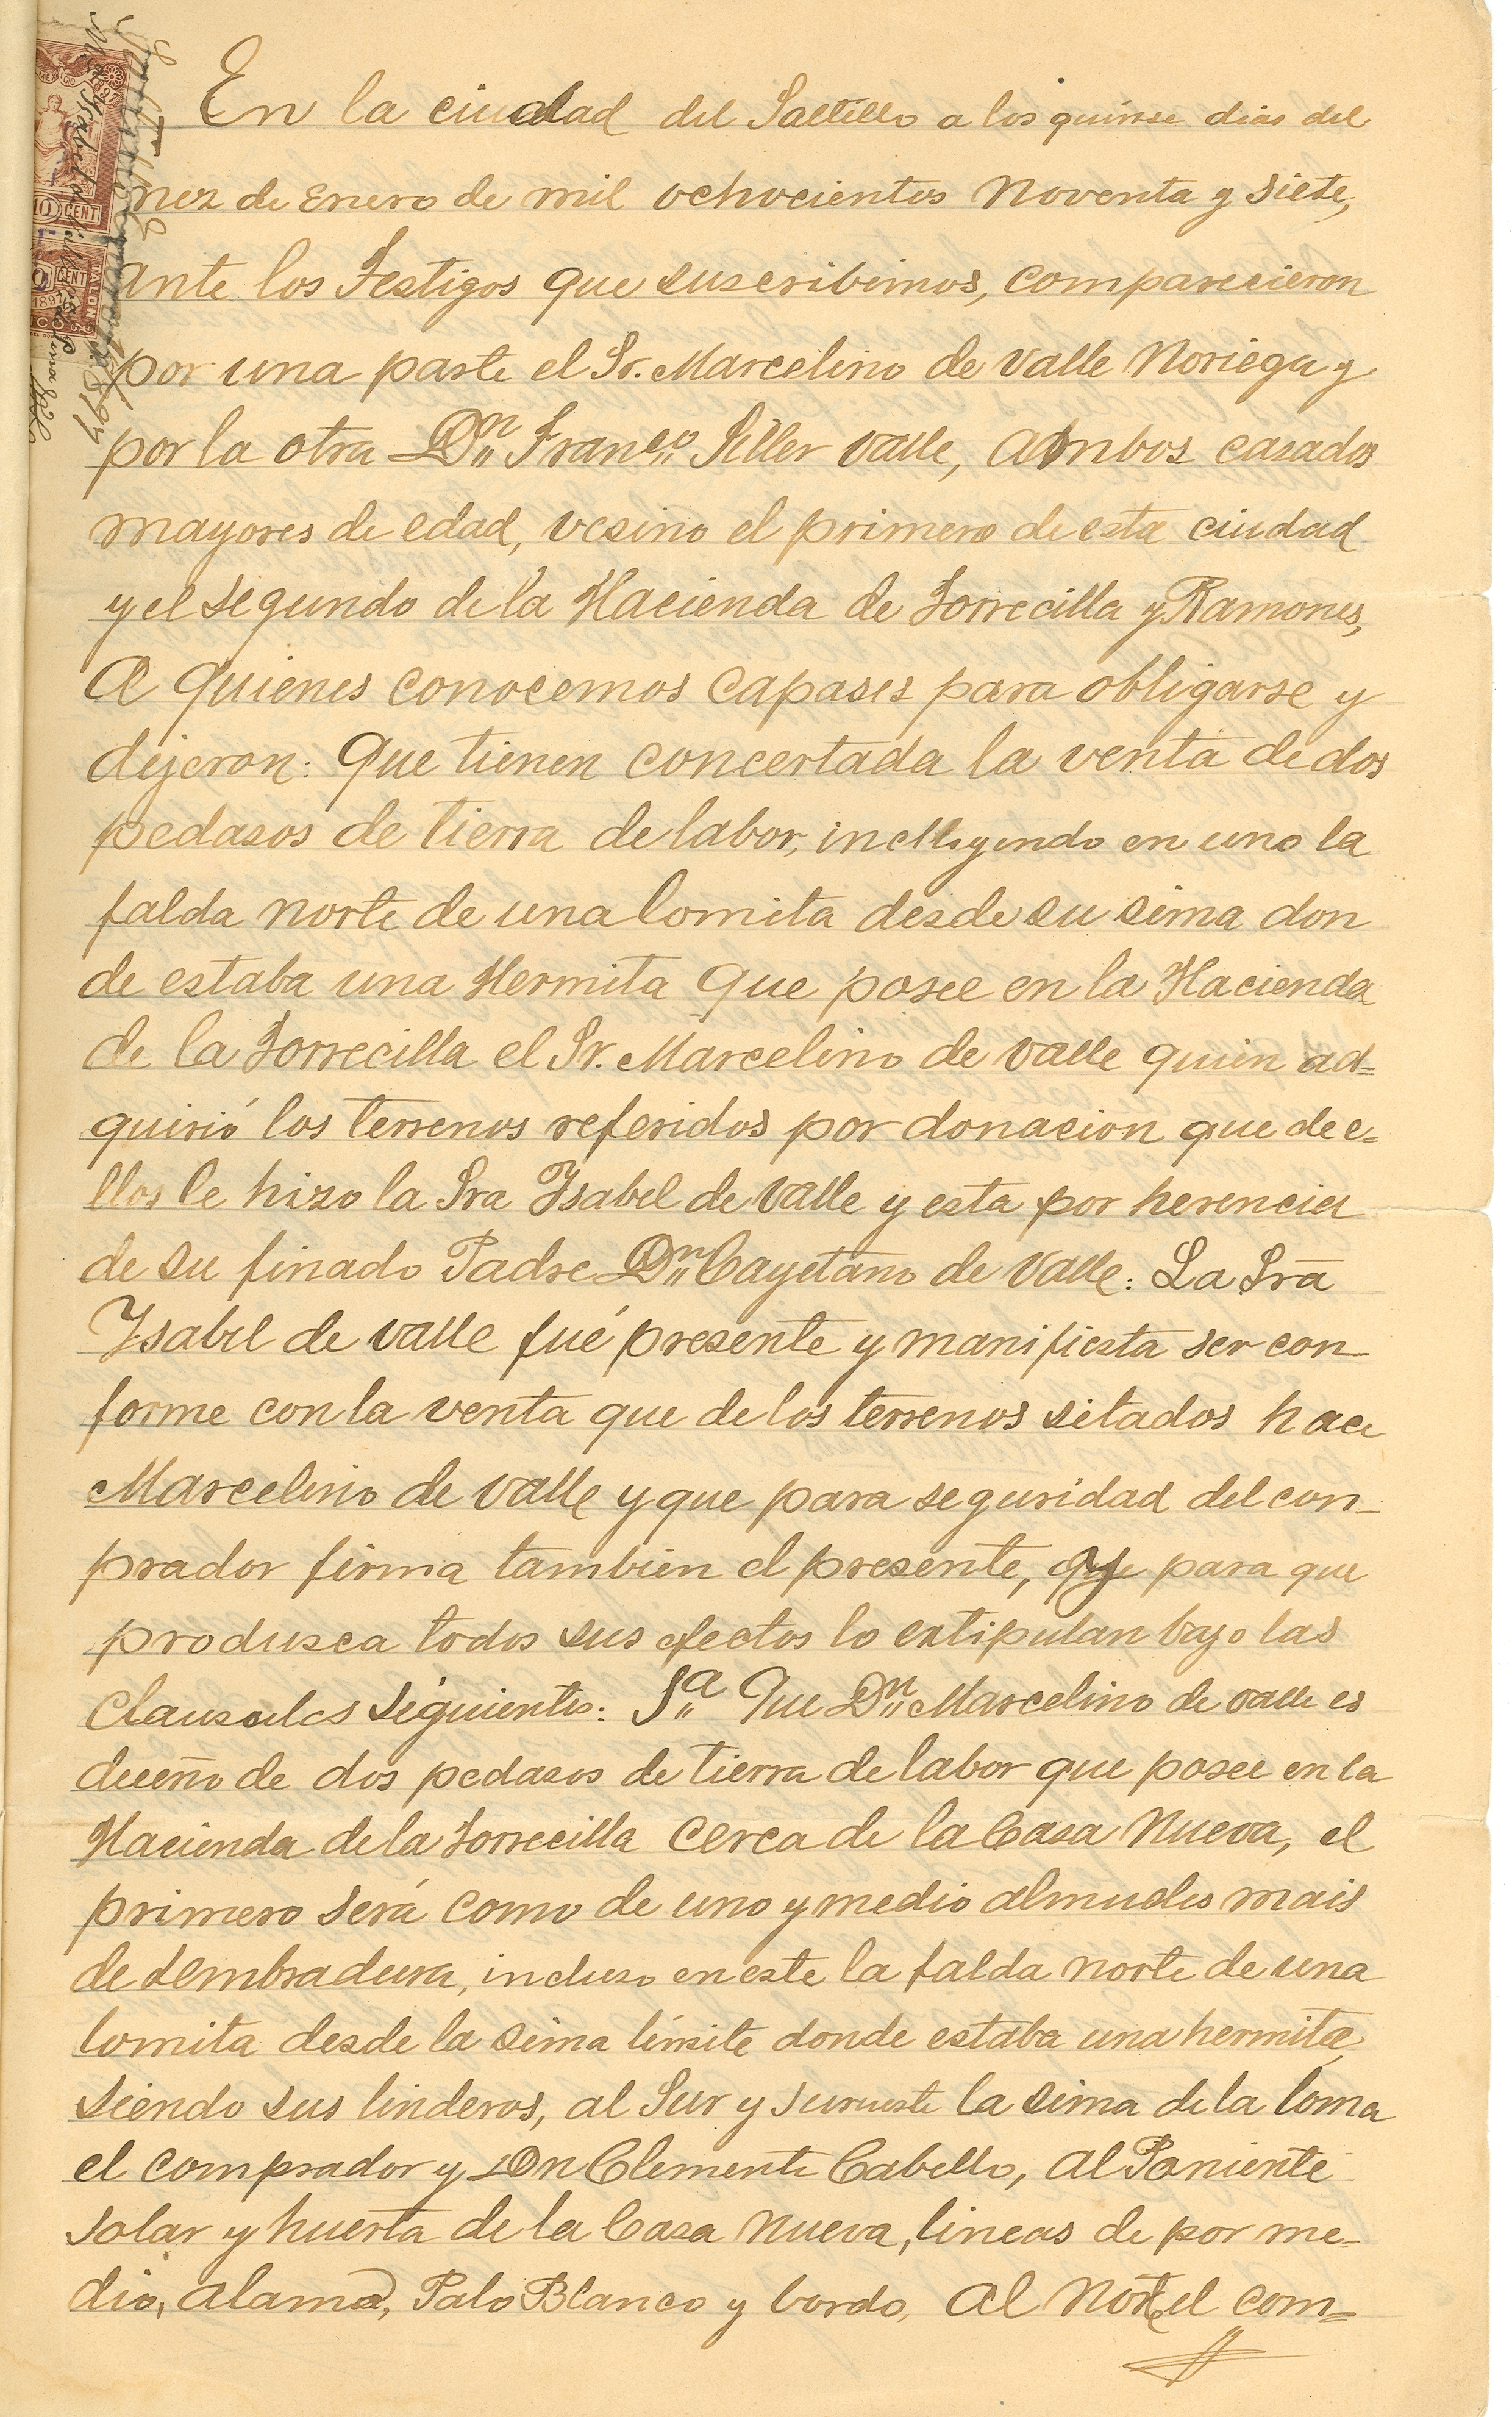 En la ciudad del Saltillo a los quinse dias del
mez de Enero de mil ochocientos noventa y siete,
ante los Testigos que suscribimos, comparecieron
por una parte el Sr. Marcelino de Valle Noriega y
por la otra Dn Franco Siller Valle, ambos casados
mayores de edad, vesino el primero de esta ciudad
y el segundo de la Hacienda de Torrecilla y Ramones,
A quienes conocemos capases para obligarse y
dijeron: Que tienen concertada la venta de dos
pedasos de tierra de labor, incluyendo en uno la
falda norte de una lomita desde su sima don
de estaba una Hermita que posee en la Hacienda
de la Torrecilla el Sr. Marcelino de Valle quien ad=
quirió los terrenos referidos por donacion que de e=
llos le hizo la Sra Ysabel de Valle y esta por herencia
de su finado Padre Dn Cayetano de Valle: La Sra
Ysabel de Valle fué presente y manifiesta ser con
forme con la venta que de los terrenos sitados hace
Marcelino de Valle y que para seguridad del con_
prador firma tambien el presente, que para que
produsca todos sus efectos lo extipulan bajo las
Clausulas siguientes: 1a Que Dn Marcelino de Valle es
dueño de dos pedasos de tierra de labor que posee en la
Hacienda de la Torrecilla cerca de la Casa Nueva, el
primero será como de uno y medio almudes mais
de sembradura, incluso en este la falda norte de una
lomita desde la sima límite donde estaba una hermita,
siendo sus linderos, al Sur y Surueste la sima de la loma
el comprador y Dn Clemente Cabello, al Poniente
solar y huerta de la Casa Nueva, lineas de por me=
dio, alamo, Palo Blanco y bordo, al Norte el com=
10 CENT
CENT
TALON
1897
MEXICO